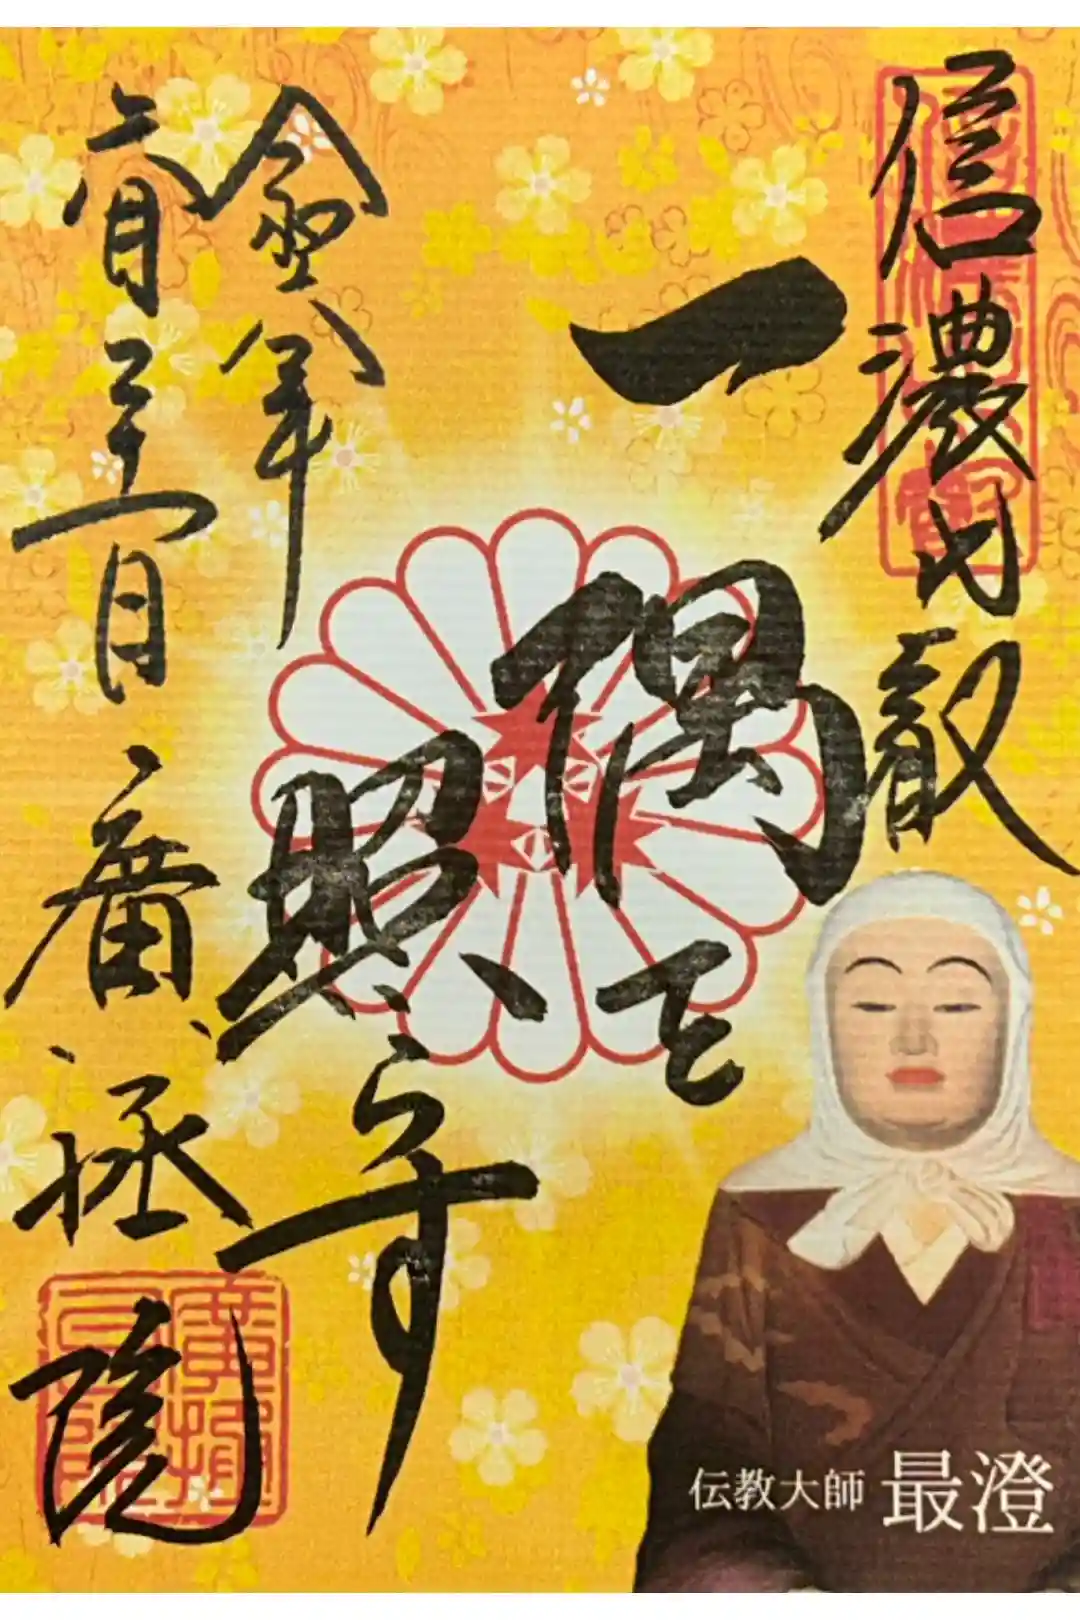 信濃比叡
一隅を
照らす
令和 年
月 日 廣拯院
伝教大師 最澄